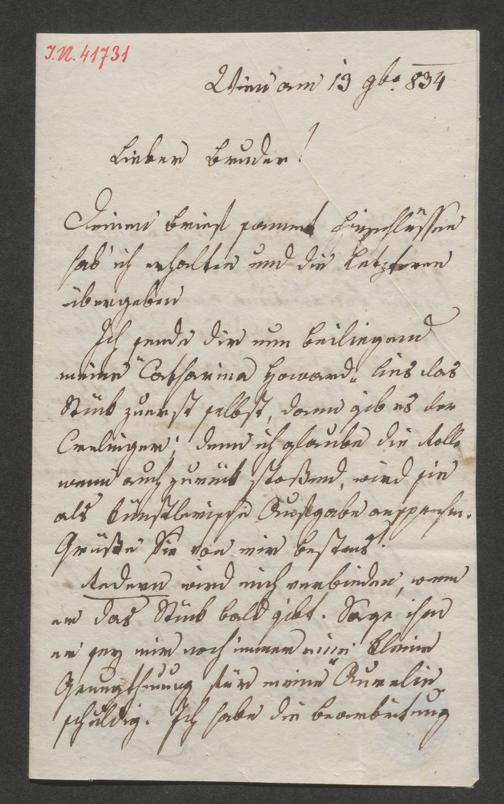 I.N. 41731
Wien am 13 9be. 834
Lieber Bruder!
Deinen Brief sammt Einschlüssen
hab' ich erhalten und die Letzteren
übergeben
Ich sende dir nun beiliegend
meine "Catharina Howard", lies das
Stück zuerst selbst, dann gib es der
Crelinger; denn ich glaube die Rolle
wenn auch zurück stoßend, wird sie
als künstlerische Aufgabe ansprechen.
Grüße Sie von mir bestens!
Redern wird mich verbinden, wenn
er das Stück bald gibt. Sage ihm
er sey mir noch immer eine kleine
Genugthuung für meine "Aurelie
schuldig. Ich habe die bearbeitung